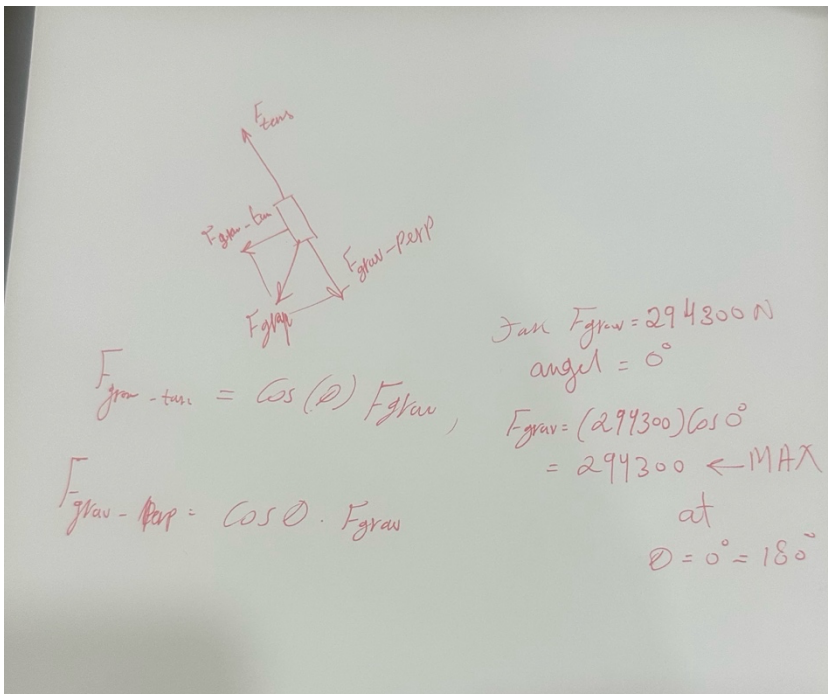 F tens
F grav-tan
F grav-perp
Fgrav
F grav-tan = Cos(θ) Fgrav,
F grav-perp = Cosθ · Fgrav
Fgrav = 294300 N
angel = 0°
Fgrav = (294300) Cos 0°
= 294300 ← MAX
at
θ = 0° = 180°